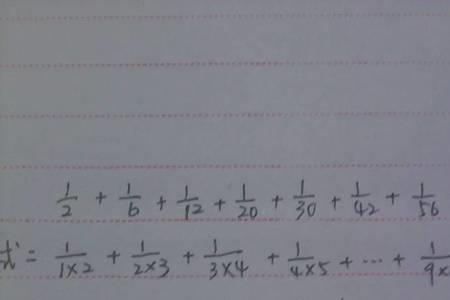 1/2 + 1/6 + 1/12 + 1/20 + 1/30 + 1/42 + 1/56
式 = 1/1×2 + 1/2×3 + 1/3×4 + 1/4×5 + ... + 1/9×